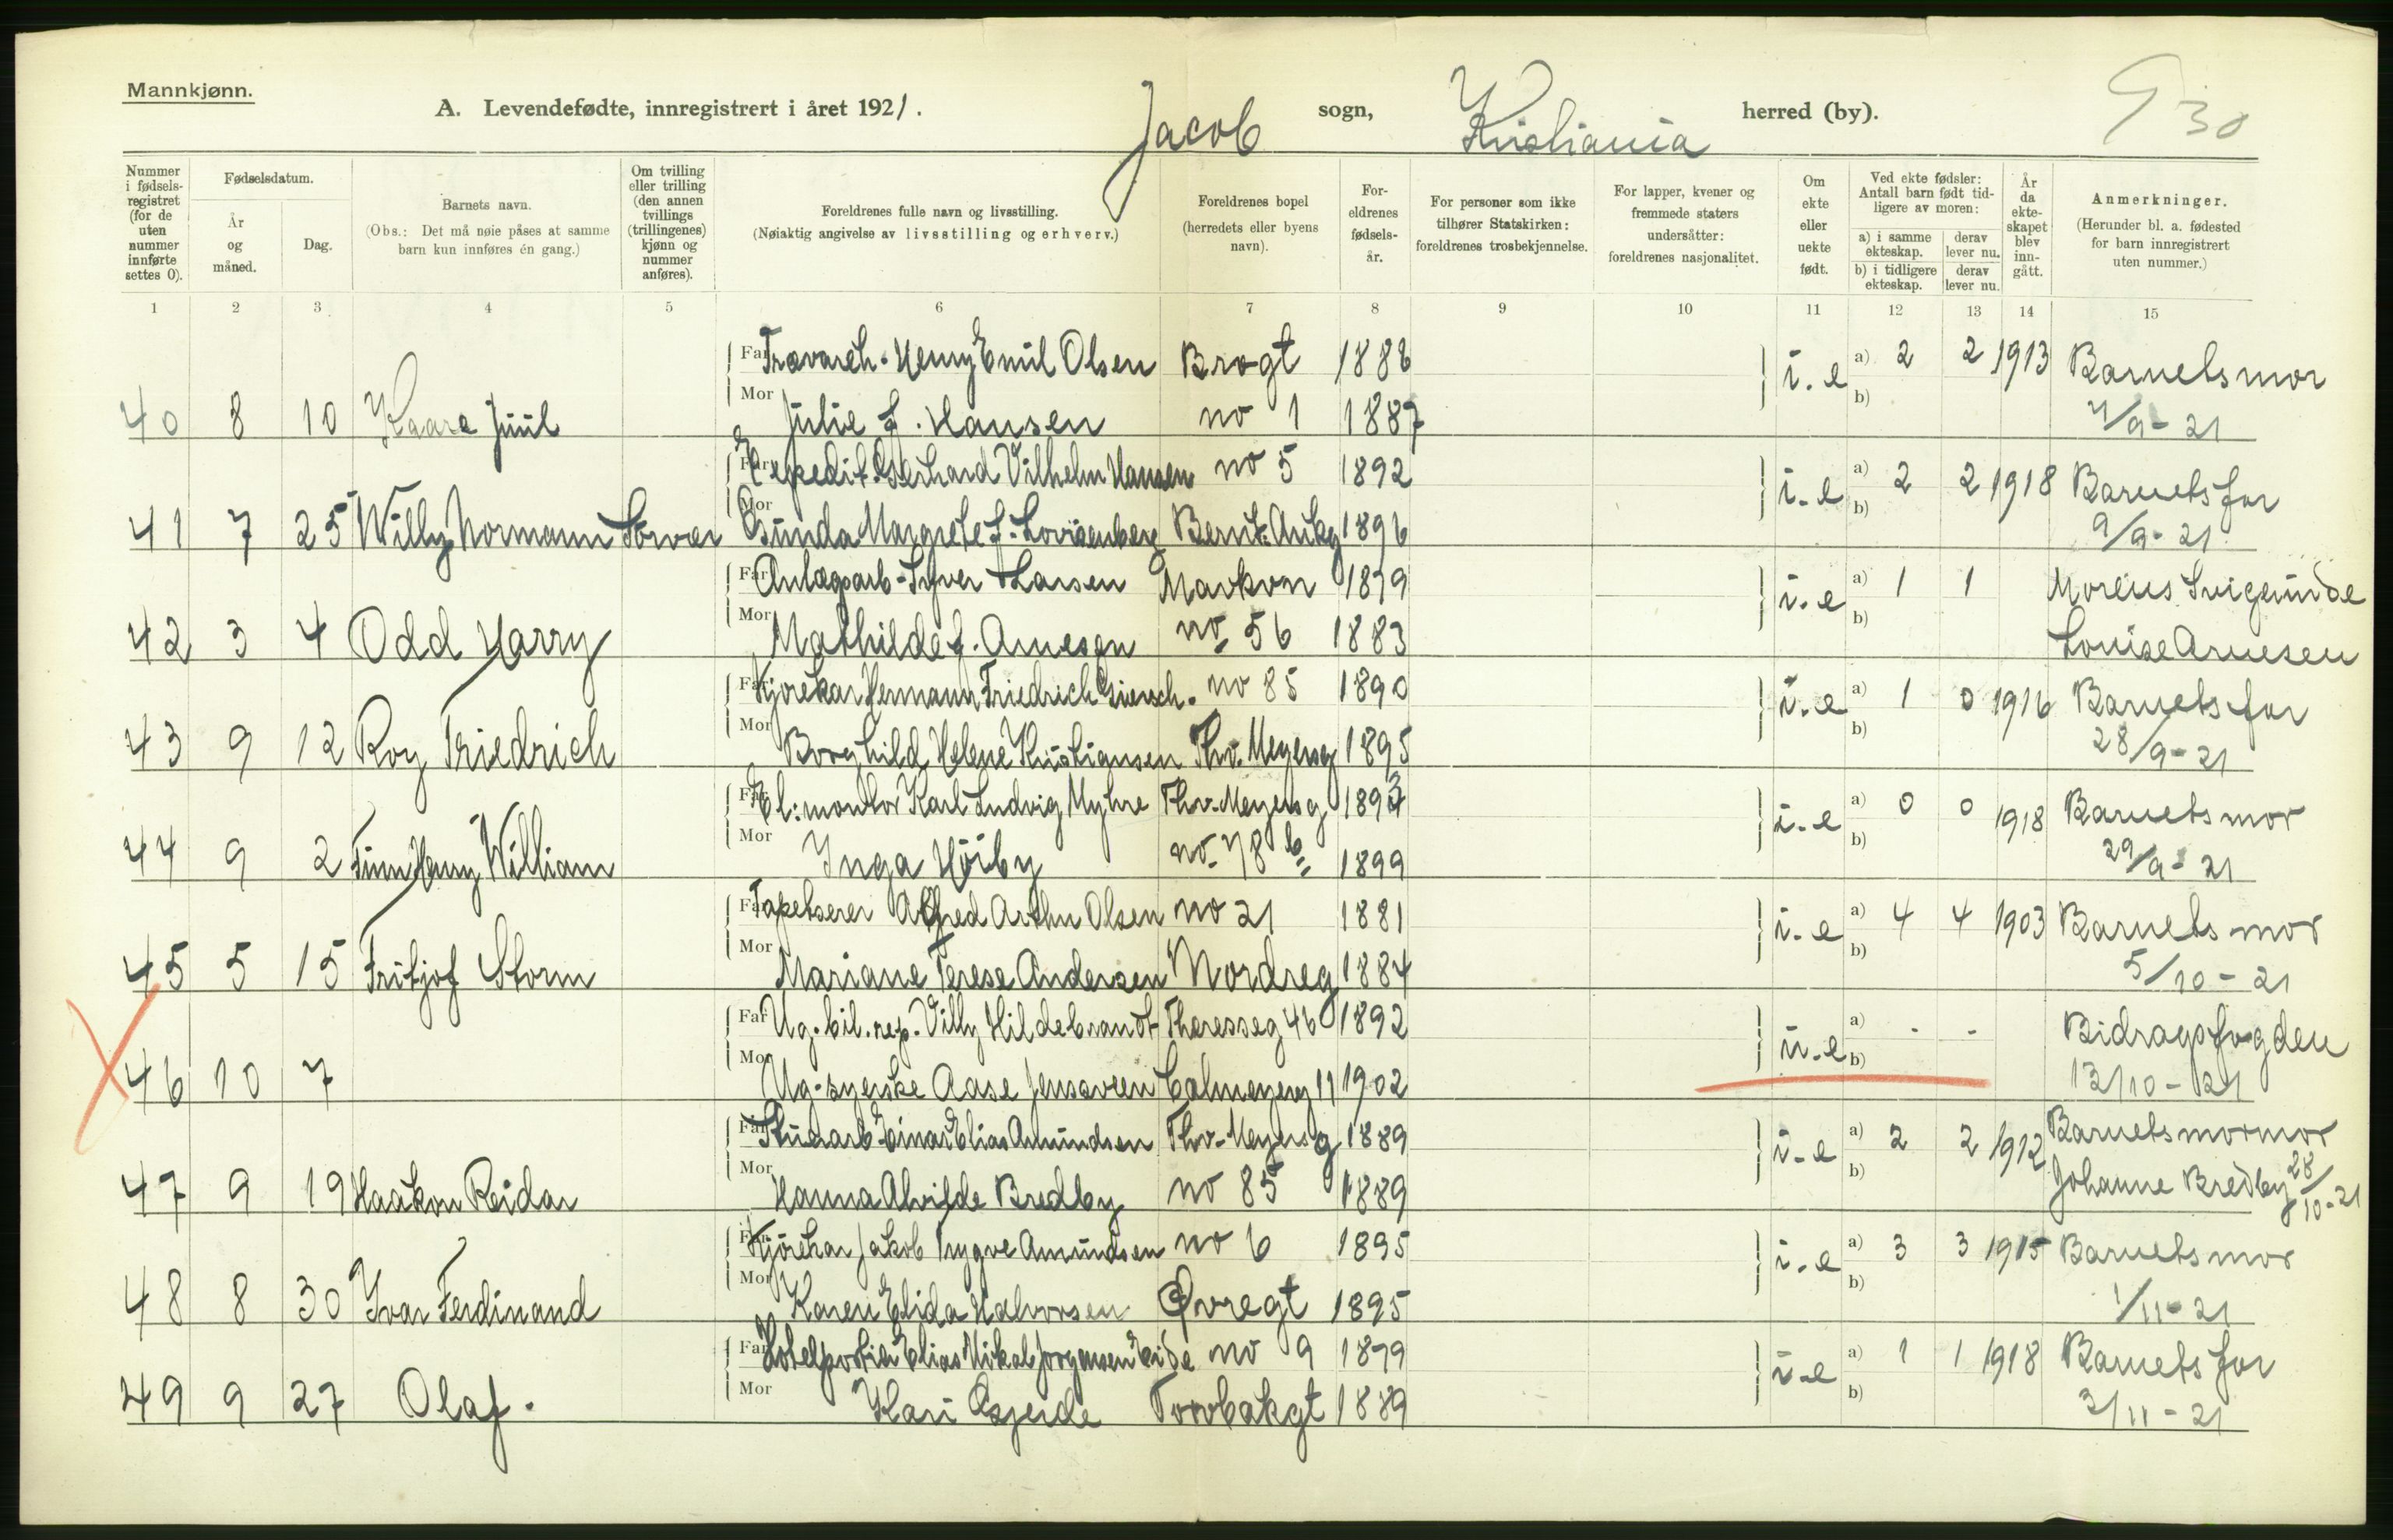 Mannkjønn.
A. Levendefødte, innregistrert i året 1921. Jacob sogn, Kristiania herred (by). 30
Nummer i fødselsregistret (for de uten nummer innførte settes 0).
Fødselsdatum.
År og måned.
Dag.
Barnets navn.
(Obs.: Det må nøie påses at samme barn kun innføres én gang.)
Om tvilling eller trilling (den annen tvillings (trillingenes) kjønn og nummer anføres).
Foreldrenes fulle navn og livsstilling.
(Nøiaktig angivelse av livsstilling og erhverv.)
Foreldrenes bopel
(herredets eller byens navn).
Foreldrenes fødselsår.
For personer som ikke tilhører Statskirken: foreldrenes trosbekjennelse.
For lapper, kvener og fremmede staters undersåtter: foreldrenes nasjonalitet.
Om ekte eller uekte født.
Ved ekte fødsler: Antall barn født tidligere av moren:
a) i samme ekteskap. derav lever nu.
b) i tidligere ekteskap. derav lever nu.
År da ekteskapet blev inngått.
Anmerkninger.
(Herunder bl. a. fødested for barn innregistrert uten nummer.)
1 2 3 4 5 6 7 8 9 10 11 12 13 14 15
Far Henry Emil Olsen Brogt 1888 i.e a) 2 2 1913 Barnets mor
40 8 10 Kaare Juul Mor Julie f. Hansen no 1 1887 b) /9-21
Far Expedit. Gerhard Vilhelm Hansen no 5 1892 i-e a) 2 2 1918 Barnets far
41 7 25 Willy Normann Mor Gunda Margrete f. Lovisenberg Bernt Ankg 1896 b) 9/9-21
Far Anlægsarb-Syver Larsen Markvn 1879 i.e a) 1 1 Morens
42 3 4 Odd Harry Mor Mathilde f. Arnesen no 56 1883 b) Louise Arnesen
Far Kjørekar Hermann Friedrich no 85 1890 i.e a) 1 0 1916 Barnets far
43 9 12 Roy Friedrich Mor Borghild Helene Kristiansen Thv. Meyersg 1895 b) 28/9-21
Far El:montør Karl Ludvig Myhre Thv-Meyersg i-e a) 0 0 1918 Barnets mor
44 9 2 Finn Henry William Mor Inga Høiby no 78 b 1899 b) 29/9-21
Far Tapetserer Alfred Arthu Olsen no 21 1881 i-e a) 4 4 1903 Barnets mor
45 5 15 Fritjof Storm Mor Mariane Terese Andersen Nordreg 1884 b) 5/10-21
Far Ug. bil.rep. Villy Hildebrandt Theresseg 46 1892 u-e a) - - Bidragsfogden
46 10 7 Mor Ug-syerske Aase Calmeyerg 11 1902 b) 13/10-21
Far Einar Elias Amundsen Thv-Meyersg 1889 i-e a) 2 2 1912 Barnets mormor
47 9 19 Haakon Reidar Mor Hanna Alvilde Bredby no 85 1889 b) Johanne Bredby 28/10-21
Far Kjørekar Jakob Trygve Amundsen no 6 1895 i-e a) 3 3 1915 Barnets mor
48 8 30 Ivar Ferdinand Mor Karen Elida Halvorsen Øvregt 1895 b) 1/11-21
Far Hotelportier Elias Mikal Jørgensen Eide no 9 1879 i-e a) 1 1 1918 Barnets far
49 9 27 Olaf. Mor Kari Torvbakgt 1889 b) 3/11-21